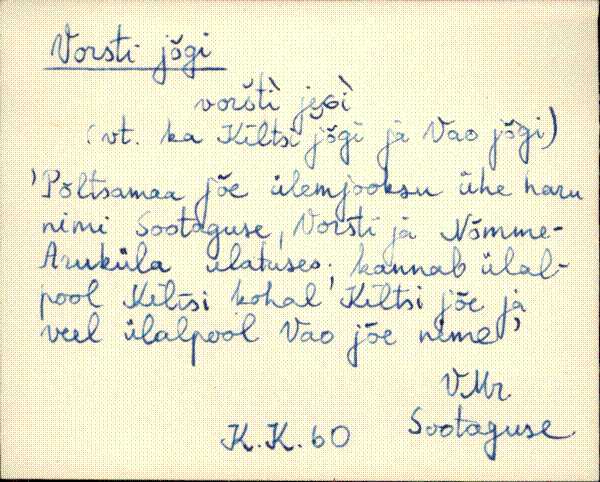 Vorsti jõgi
vorštì̬ jeɢì
(vt. ka Kiltsi jõgi ja Vao jõgi)
'Põltsamaa jõe ülemjooksu ühe haru
nimi Sootaguse, Vorsti ja Nõmme-
Aruküla ulatuses; kannab ülal-
pool Kiltsi kohal Kiltsi jõe ja
veel ülalpool Vao jõe nime'
VMr
Sootaguse
K.K. 60